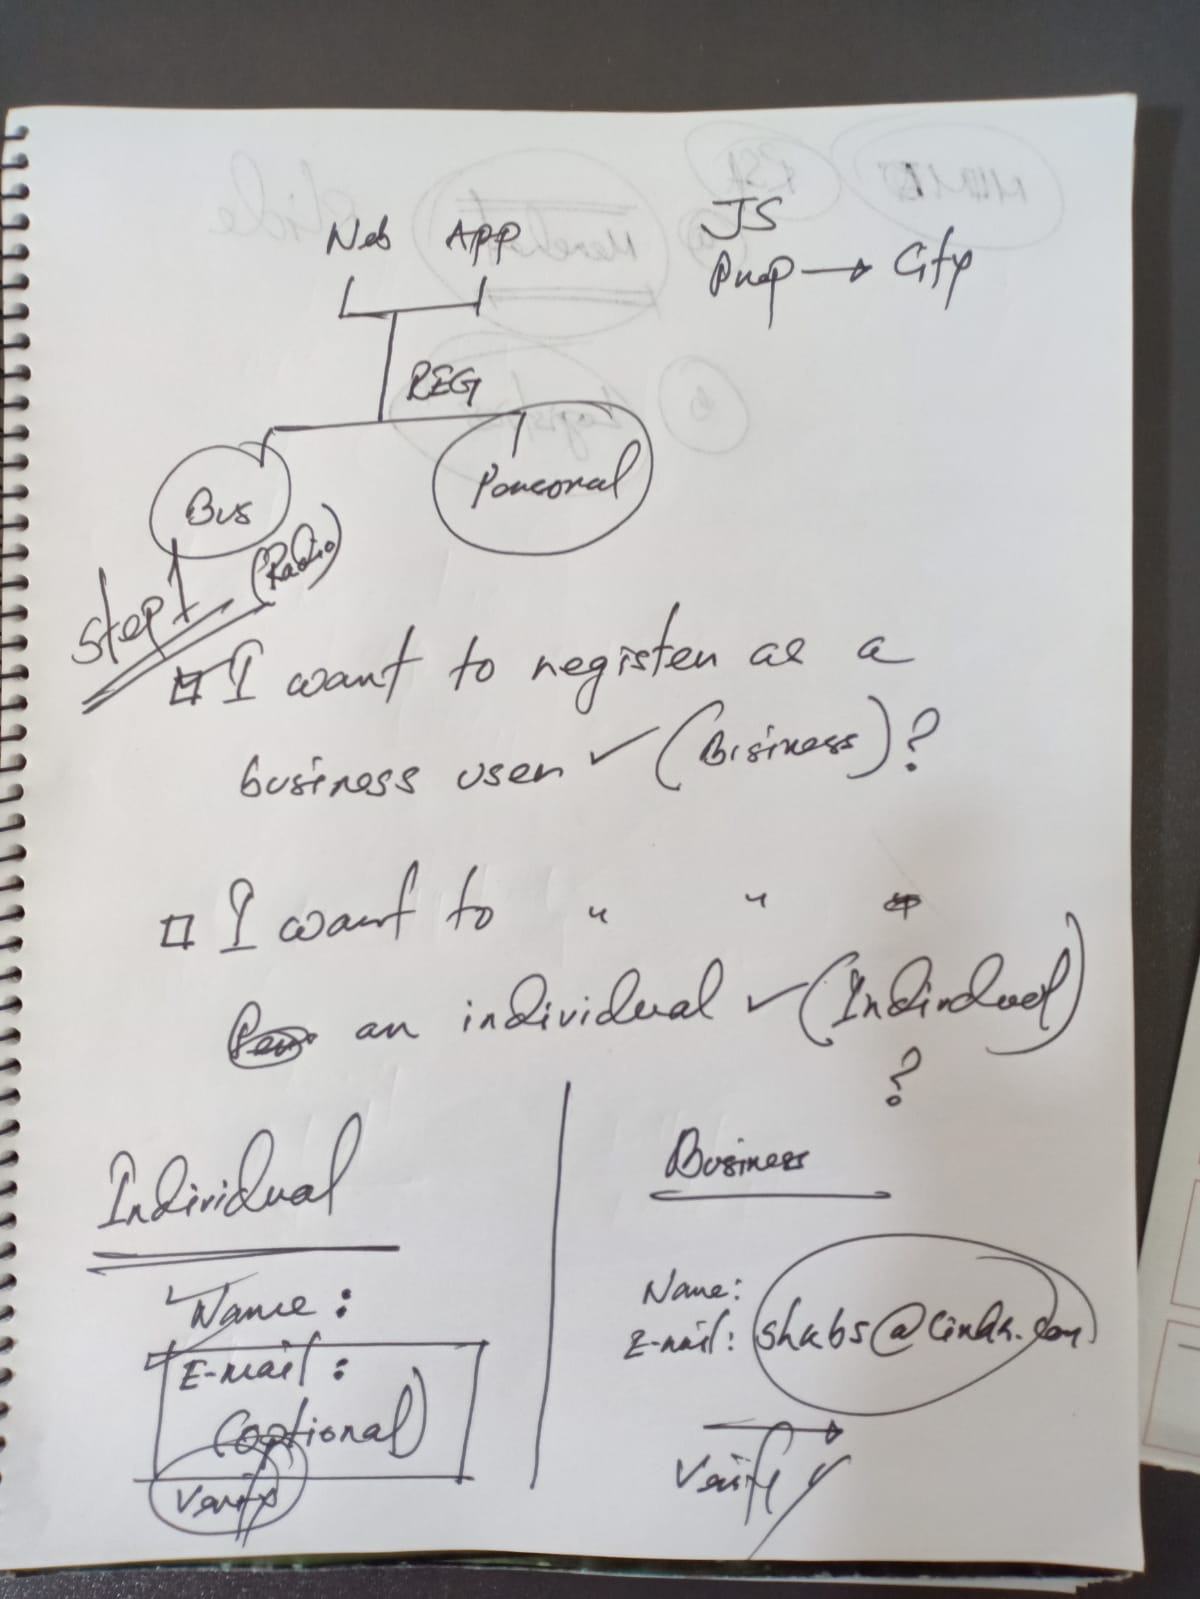 Web APP
JS
Prep → City
REG
Bus
Personal
Step 1 (Radio)
I want to register as a
business user ✓ (Bisiness)?
I want to " "
an individual ✓ (Individual)
?
Individual
Name:
E-mail:
(optional)
Verify
Business
Name:
E-mail:
Verify ✓